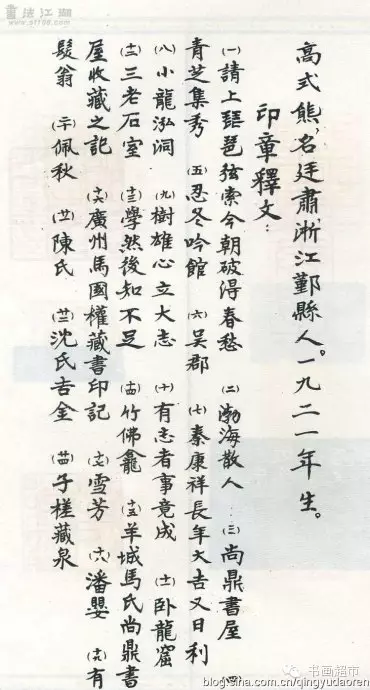 書法江湖
www.sf108.com
高式熊,名廷肅浙江鄞縣人。一九二一年生。
印章釋文:
(一)請上琵琶弦索今朝破得春愁 (二)渤海散人 (三)尚鼎書屋 (四)
青芝集秀 (五)忍冬吟館 (六)吴郡 (七)秦康祥長年大吉又日利
(八)小龍泓洞 (九)樹雄心立大志 (十)有志者事竟成 (十一)卧龍窟
(十二)三老石室 (十三)學然後知不足 (十四)竹佛龕 (十五)羊城馬氏尚鼎書
屋收藏之記 (十六)廣州馬國權藏書印記 (十七)雪芳 (十八)潘嬰 (十九)有
髮翁 (二十)佩秋 (廿一)陳氏 (廿二)沈氏吉金 (廿四)子槎藏泉
书画超市
blog.sina.com.cn/qingyudaoren